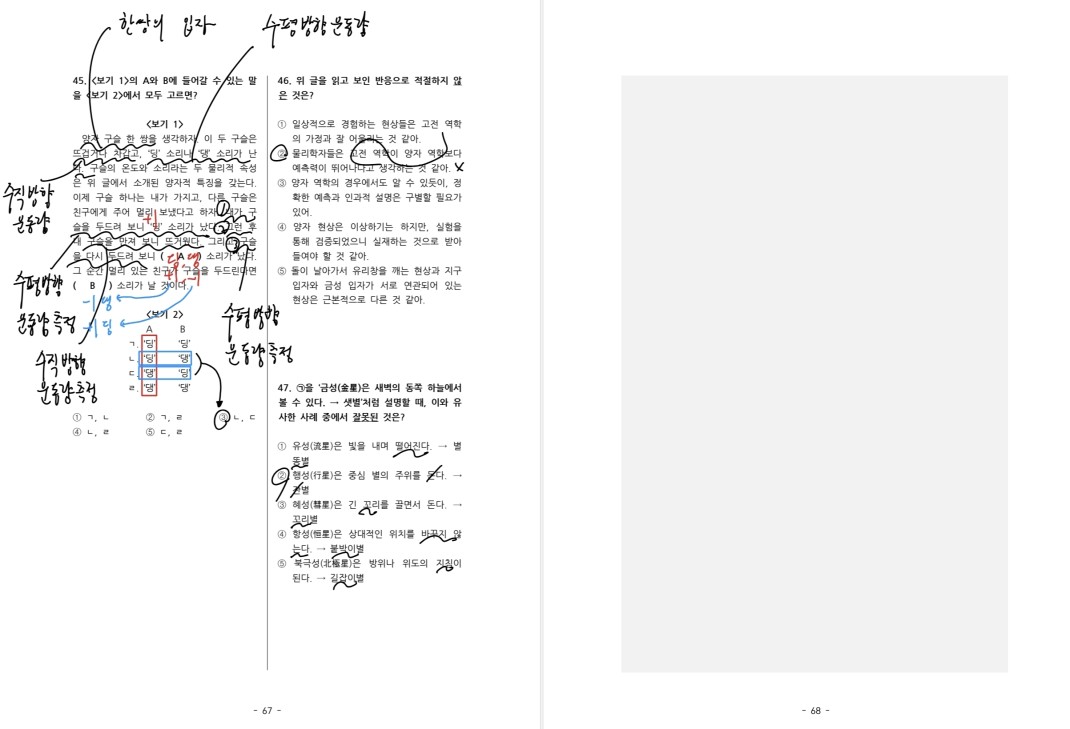 한쌍의 입자
수평방향 운동량
45. <보기 1>의 A와 B에 들어갈 수 있는 말
을 <보기 2>에서 모두 고르면?
<보기 1>
양자 구슬 한 쌍을 생각하자. 이 두 구슬은
뜨겁거나 차갑고, '딩' 소리나 '댕' 소리가 난
다. 구슬의 온도와 소리라는 두 물리적 속성
은 위 글에서 소개된 양자적 특징을 갖는다.
이제 구슬 하나는 내가 가지고, 다른 구슬은
친구에게 주어 멀리 보냈다고 하자. 내가 구
슬을 두드려 보니 '딩' 소리가 났다. 그런 후
내 구슬을 만져 보니 뜨거웠다. 그리고 구슬
을 다시 두드려 보니 ( A ) 소리가 났다.
그 순간 멀리 있는 친구가 구슬을 두드린다면
( B ) 소리가 날 것이다.
수직방향
운동량
①
②
③
+1
딩, 댕
+1, -1
-1 댕
+1 딩
수평방향
운동량 측정
수직방향
운동량 측정
수평방향
운동량 측정
<보기 2>
A B
ㄱ. '딩' '딩'
ㄴ. '딩' '댕'
ㄷ. '댕' '딩'
ㄹ. '댕' '댕'
① ㄱ, ㄴ ② ㄱ, ㄹ ③ ㄴ, ㄷ
④ ㄴ, ㄹ ⑤ ㄷ, ㄹ
46. 위 글을 읽고 보인 반응으로 적절하지 않
은 것은?
① 일상적으로 경험하는 현상들은 고전 역학
의 가정과 잘 어울리는 것 같아.
② 물리학자들은 고전 역학이 양자 역학보다
예측력이 뛰어나다고 생각하는 것 같아. x
③ 양자 역학의 경우에서도 알 수 있듯이, 정
확한 예측과 인과적 설명은 구별할 필요가
있어.
④ 양자 현상은 이상하기는 하지만, 실험을
통해 검증되었으니 실재하는 것으로 받아
들여야 할 것 같아.
⑤ 돌이 날아가서 유리창을 깨는 현상과 지구
입자와 금성 입자가 서로 연관되어 있는
현상은 근본적으로 다른 것 같아.
47. ㉠을 '금성(金星)은 새벽의 동쪽 하늘에서
볼 수 있다. → 샛별'처럼 설명할 때, 이와 유
사한 사례 중에서 잘못된 것은?
① 유성(流星)은 빛을 내며 떨어진다. → 별
똥별
② 행성(行星)은 중심 별의 주위를 돈다. →
잔별
③ 혜성(彗星)은 긴 꼬리를 끌면서 돈다. →
꼬리별
④ 항성(恒星)은 상대적인 위치를 바꾸지 않
는다. → 붙박이별
⑤ 북극성(北極星)은 방위나 위도의 지침이
된다. → 길잡이별
- 67 -
- 68 -